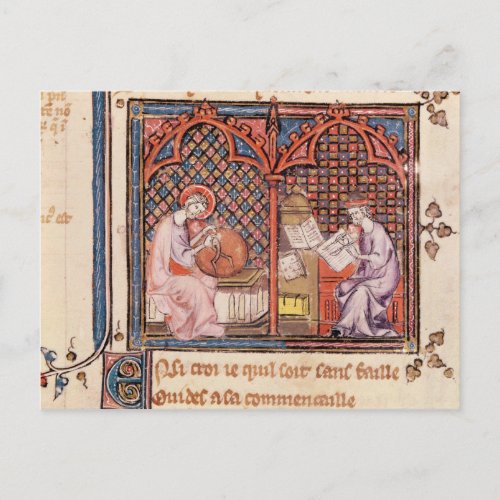 te nō
e qi
Ensi croi ie quil soit sans faille
Ouides a sa commencaille